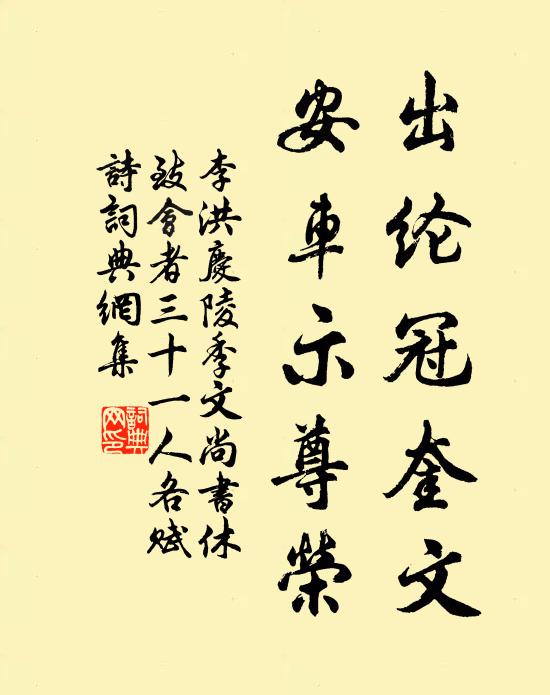 出纶冠奎文
安車示尊榮
李洪慶陵季文尚書休
致會者三十一人各赋
詩詞典網集
詞典網印